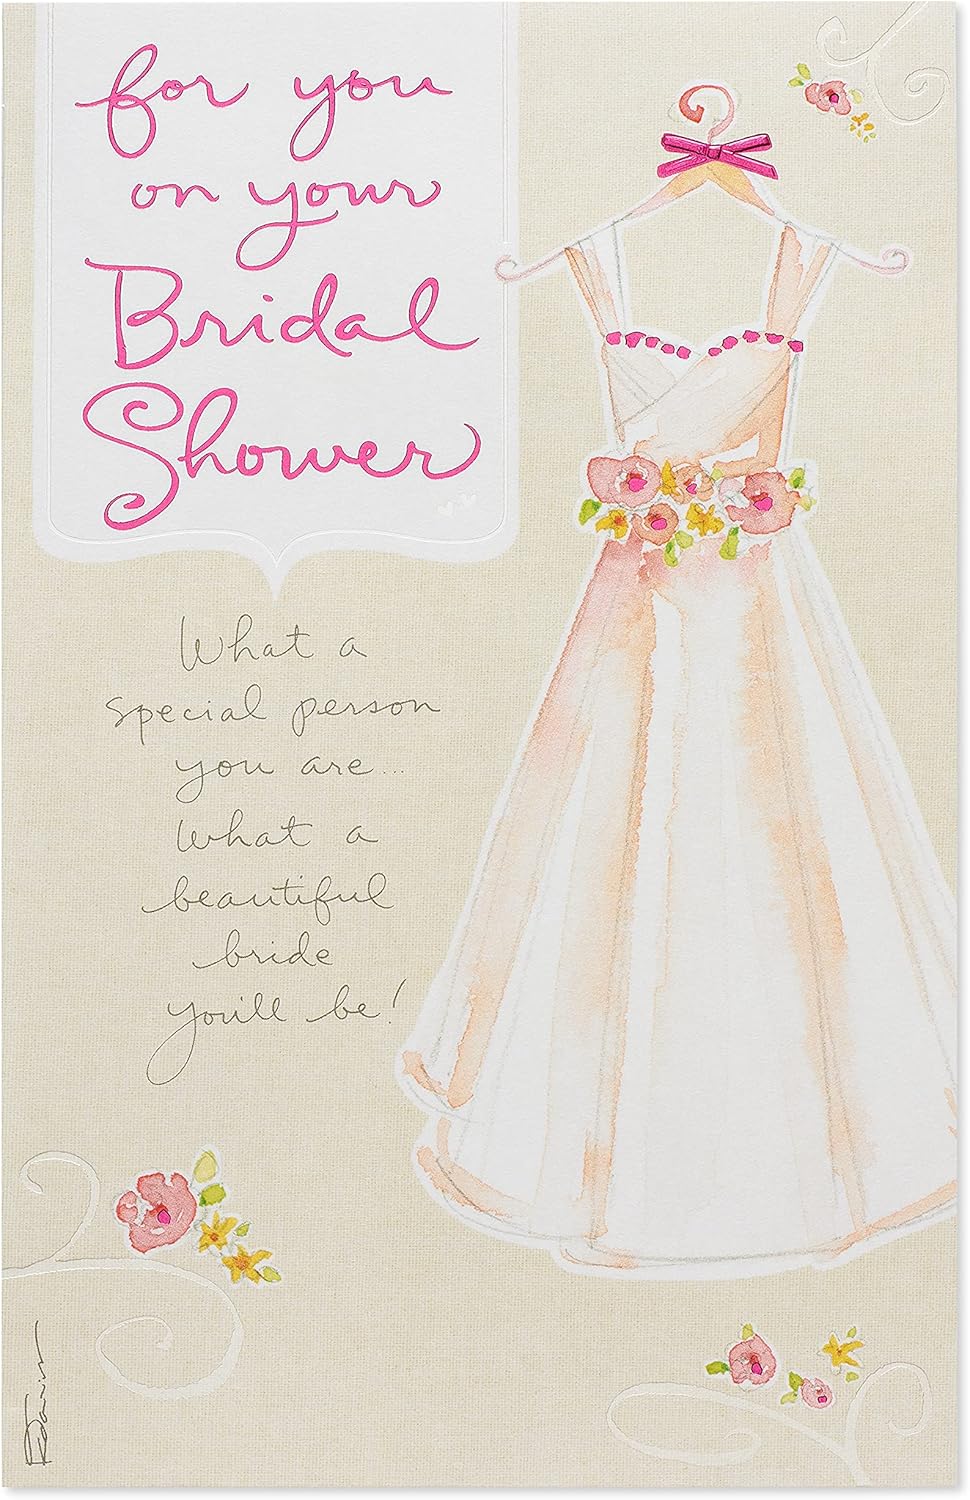 for you
on your
Bridal
Shower
What a
special person
you are...
what a
beautiful
bride
you'll be!